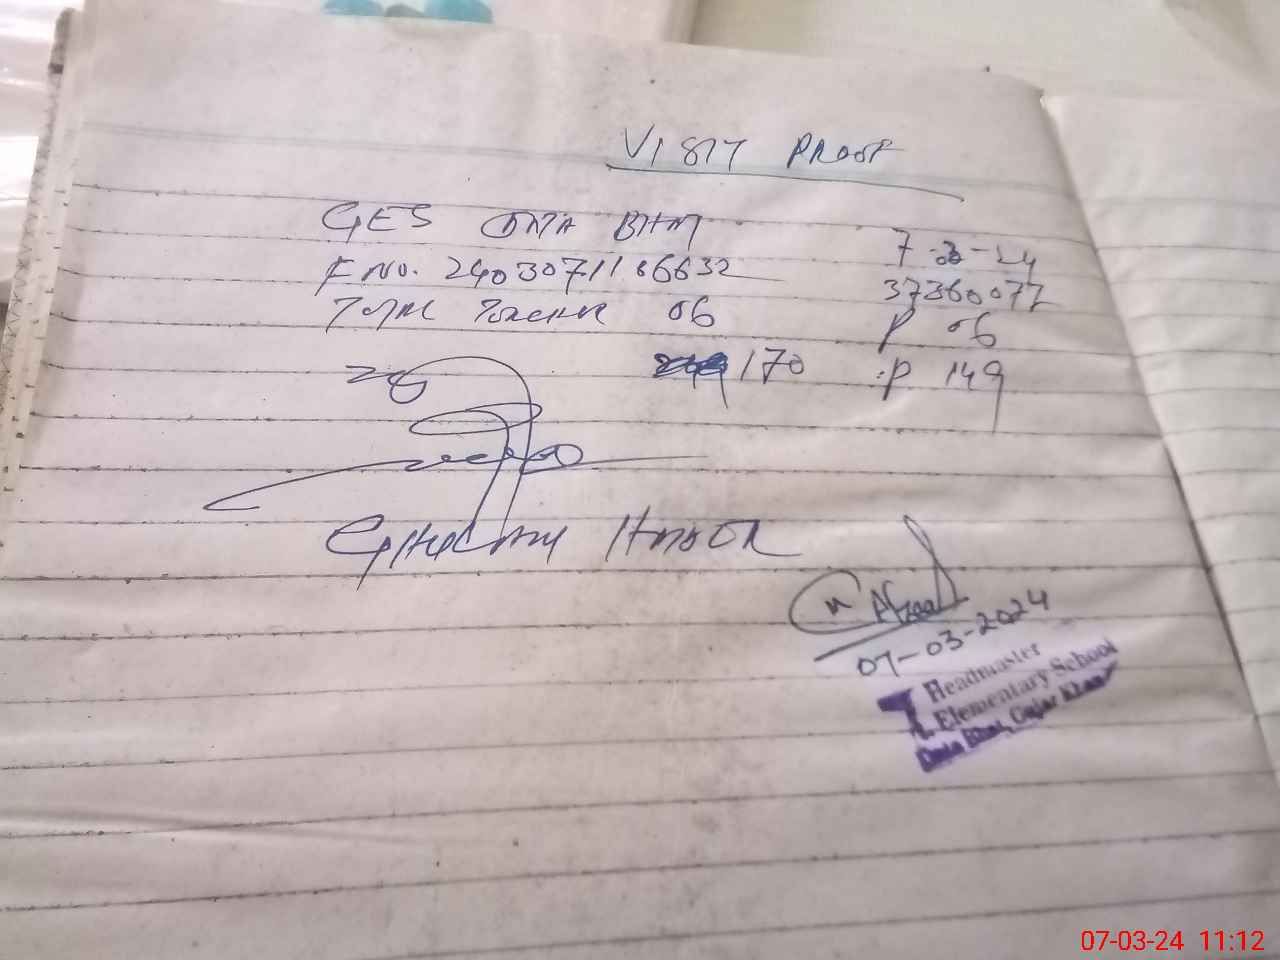 VISIT PROOF
GES DATA BHAT 7-3-24
F NO. 2403071186632 37360077
Total Teacher 06 P 06
170 P 149
Ghulam
Afzaal
07-03-2024
Headmaster
Elementary School
Data Bhat, Gujar Khan
07-03-24 11:12